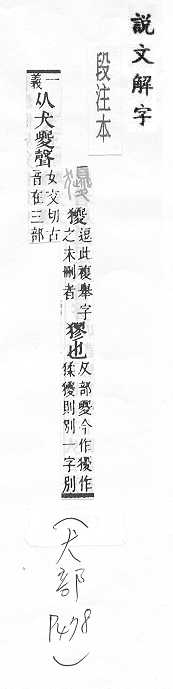 說文解字
段注本
獿
獿
逗此複舉字
之未刪者
㺒也
夊部夒今作獿作
猱獿則別一字別
一
義
从犬夒聲
女交切古
音在三部
(犬部 P478)